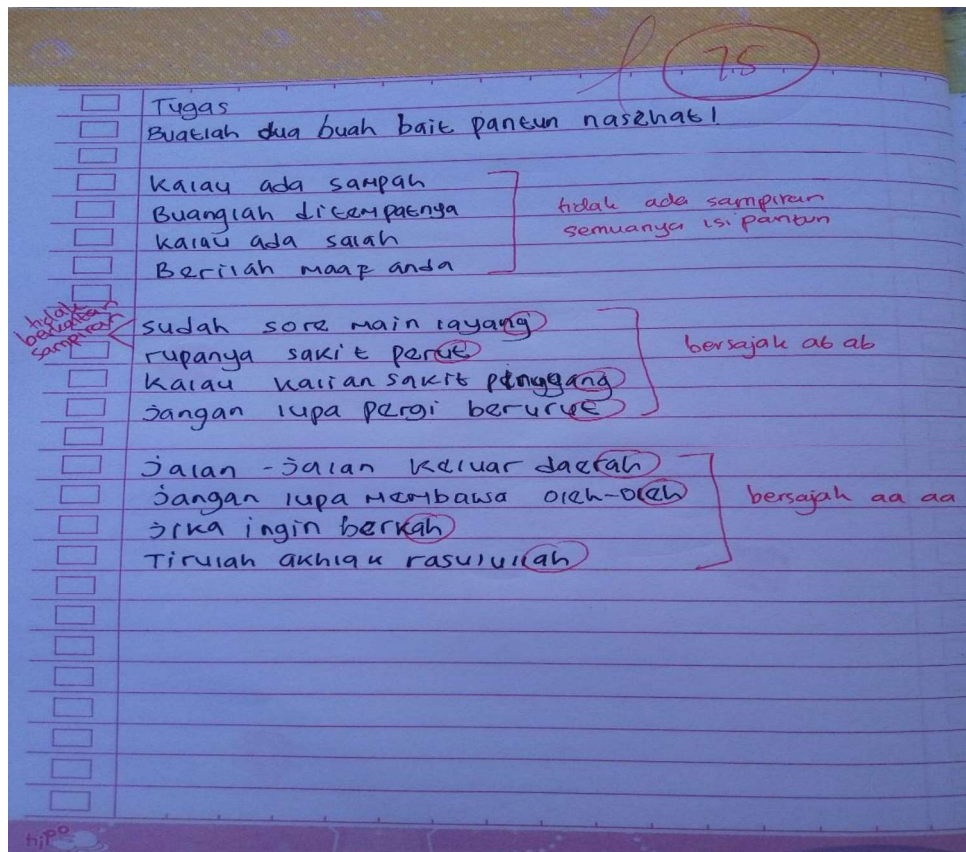 75
Tugas
Buatlah dua buah bait pantun nasehat!
Kalau ada sampah
Buanglah ditempatnya
Kalau ada salah
Berilah maaf anda
tidak ada sampiran
semuanya isi pantun
tidak
berkaitan
sampiran
sudah sore main layang
rupanya sakit perut
Kalau kalian sakit pinggang
Jangan lupa pergi berurut
bersajak ab ab
Jalan - Jalan keluar daerah
Jangan lupa membawa oleh-oleh
Jika ingin berkah
Tirulah akhlak rasulullah
bersajah aa aa
hipo